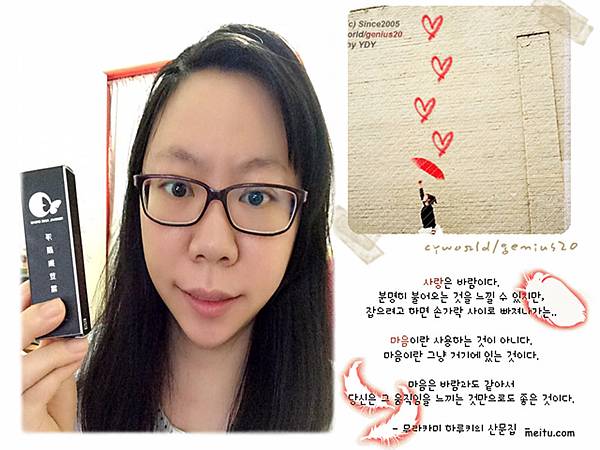 (c) Since2005
world/genius20
by YDY
cyworld/genius20
사랑은 바람이다.
분명히 불어오는 것을 느낄 수 있지만,
잡으려고 하면 손가락 사이로 빠져나가는..
마음이란 사용하는 것이 아니다.
마음이란 그냥 거기에 있는 것이다.
마음은 바람과도 같아서
당신은 그 움직임을 느끼는 것만으로도 좋은 것이다.
- 무라카미 하루키의 산문집 -
meitu.com